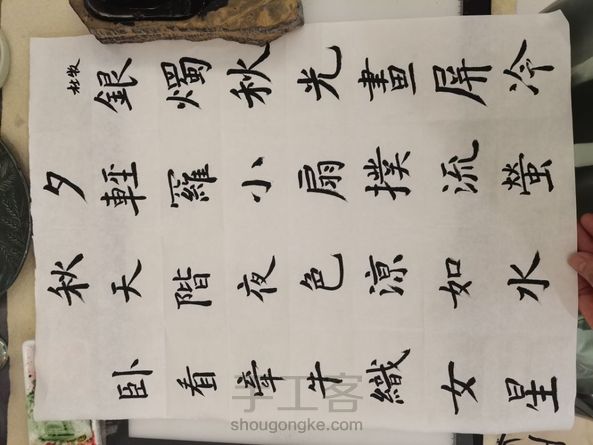 秋夕
杜牧
銀燭秋光畫屏冷
輕羅小扇撲流螢
天階夜色涼如水
卧看牽牛織女星
手工客
shougongke.com